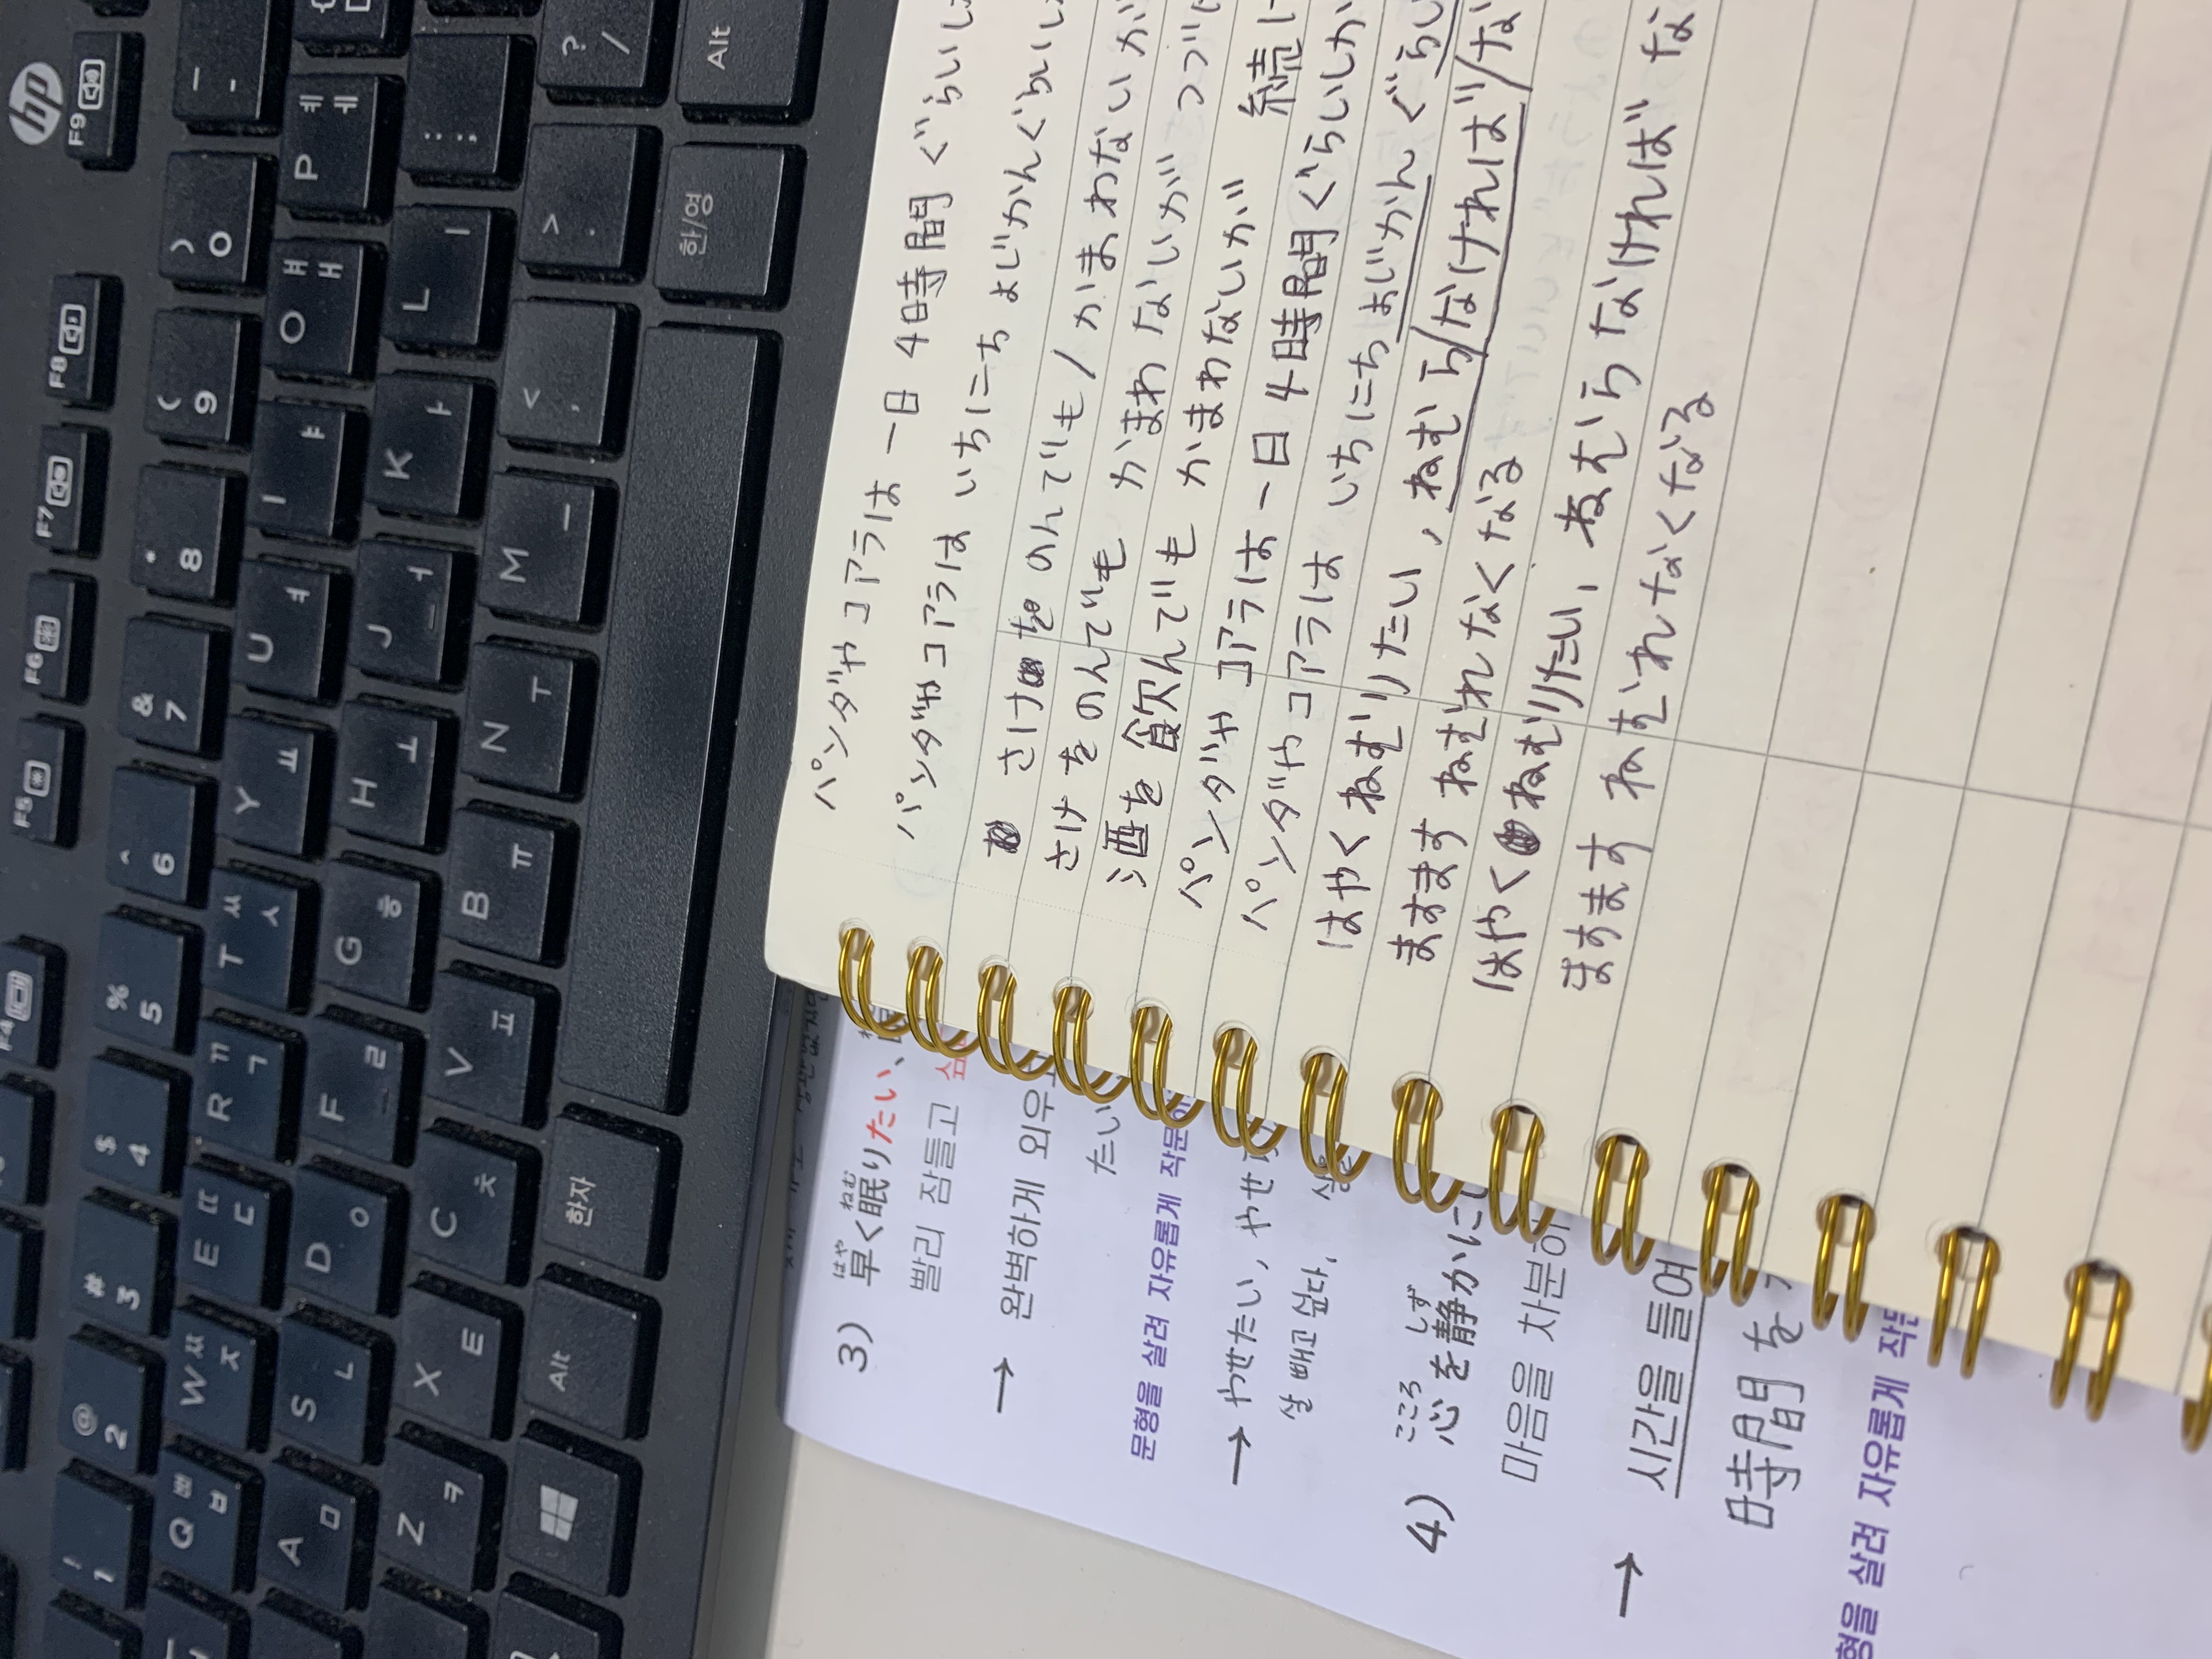 パンダやコアラは 一日 4時間 ぐらいし
パンダやコアラは いちにち よじかんぐらいし
さけ を のんでも / かまわないが
さけ を のんでも かまわ ないが つづけ
酒を 飲んでも かまわないが 続け
パンダや コアラは 一日 4時間ぐらいしか
パンダやコアラは いちにち よじかん ぐらい
はやく ねむりたい , ねむら/なければ/な
ますます ねむれなくなる
はやく ねむりたい, ねむらなければ な
ますます ねむれなくなる
3) 早く眠りたい、
はや ねむ
빨리 잠들고 싶
→ 완벽하게 외우고
たい
문형을 살려 자유롭게 작문
→ やせたい, やせ
살 빼고 싶다, 살을
4) 心を静かに
こころ しず
마음을 차분히
→ 시간을 들여
時間 を
형을 살려 자유롭게 작문
hp
F4
F5
F6
F7
F8
F9
! 1
@ 2
# 3
$ 4
% 5
^ 6
& 7
* 8
( 9
) 0
_ -
Q ㅃ ㅂ
W ㅉ ㅈ
E ㄸ ㄷ
R ㄲ ㄱ
T ㅆ ㅅ
Y ㅛ
U ㅕ
I ㅑ
O ㅒ ㅐ
P ㅖ ㅔ
A ㅁ
S ㄴ
D ㅇ
F ㄹ
G ㅎ
H ㅗ
J ㅓ
K ㅏ
L ㅣ
: ;
Z ㅋ
X ㅌ
C ㅊ
V ㅍ
B ㅠ
N ㅜ
M ㅡ
< ,
> .
? /
Alt
한자
한/영
Alt